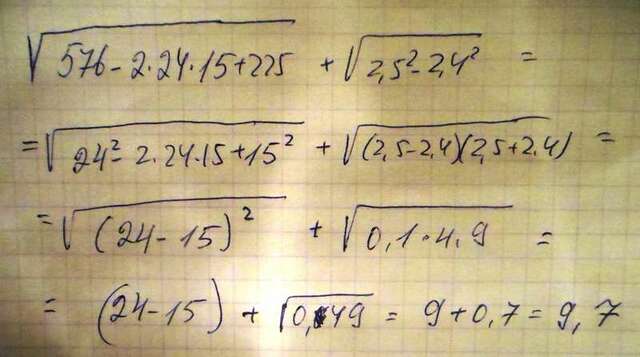 √(576 - 2·24·15 + 225) + √(2,5² - 2,4²) =
= √(24² - 2·24·15 + 15²) + √((2,5 - 2,4)(2,5 + 2,4)) =
= √((24 - 15)²) + √(0,1·4,9) =
= (24 - 15) + √(0,49) = 9 + 0,7 = 9,7